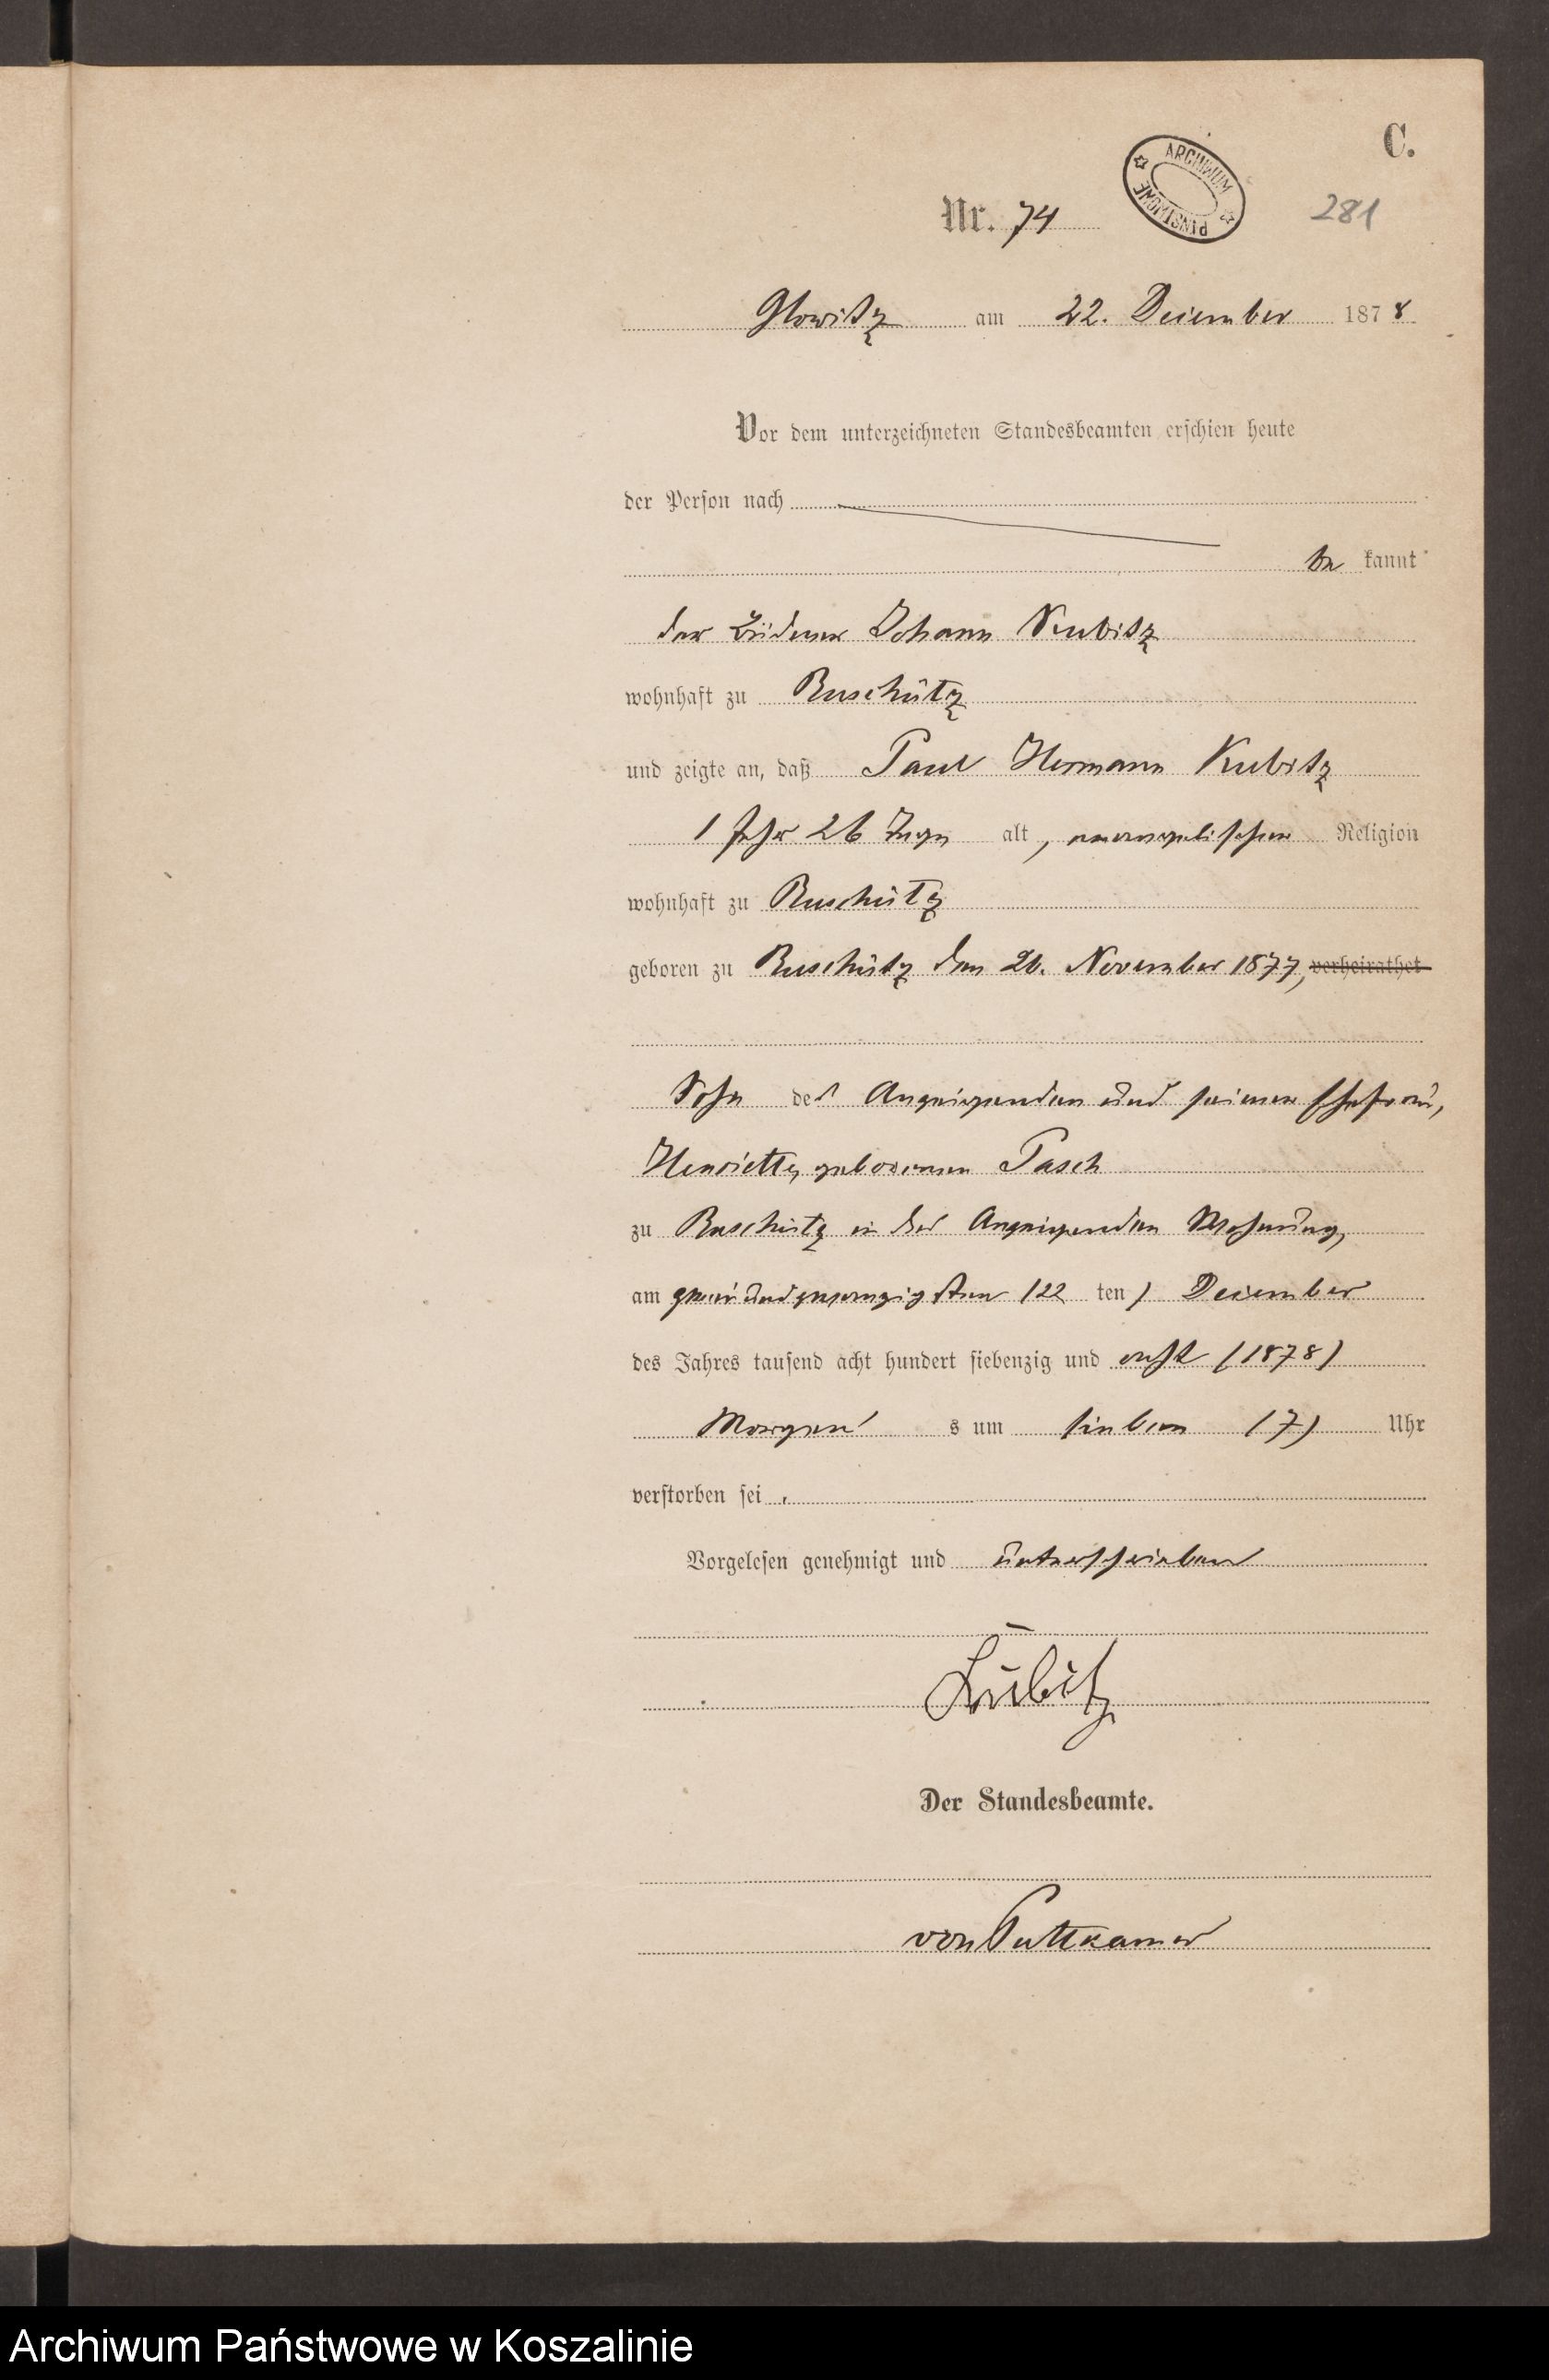 C.
ARCHIWUM PAŃSTWOWE
Nr. 74
281
Glowitz am 22. December 1878
Vor dem unterzeichneten Standesbeamten erschien heute
der Person nach
be kannt
der Büdner Johann Kubitz
wohnhaft zu Ruschütz
und zeigte an, daß Paul Hermann Kubitz
1 Jahr 26 Tage alt, evangelischer Religion
wohnhaft zu Ruschütz
geboren zu Ruschütz den 26. November 1877, verheirathet
Sohn des Anzeigenden und seiner Ehefrau,
Henriette, geborenen Pasch
zu Ruschütz in des Anzeigenden Wohnung,
am zweiundzwanzigsten (22 ten) December
des Jahres tausend acht hundert siebenzig und acht (1878)
Morgens um sieben (7) Uhr
verstorben sei.
Vorgelesen genehmigt und unterschrieben
Kubitz
Der Standesbeamte.
von Puttkamer
Archiwum Państwowe w Koszalinie